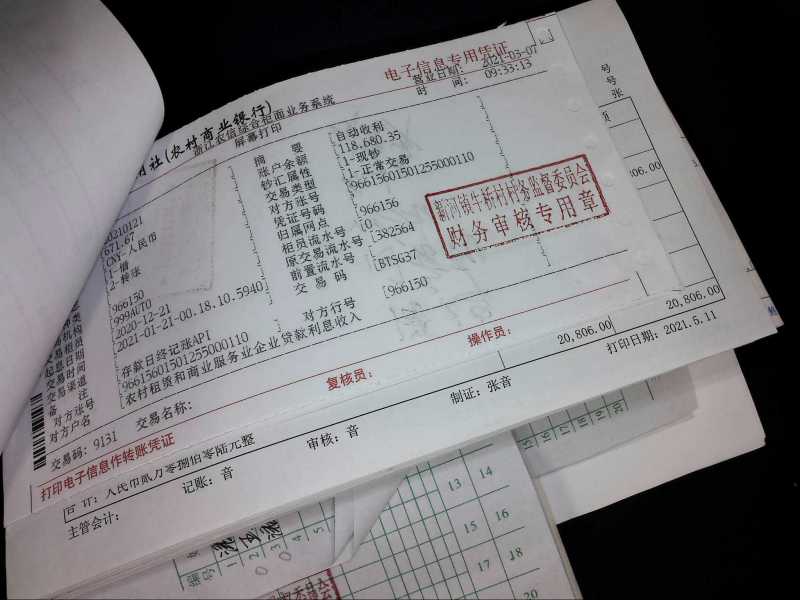 电子信息专用凭证
营业日期: 2021-03-07
时 间: 09:33:13
社(农村商业银行)
浙江农信综合柜面业务系统
屏幕打印
摘 要 [自动收利
账户余额 [118,680.35
钞汇属性 [1-现钞
交易类型 [1-正常交易
对方账号 [96615601501255000110
凭证号码
归属网点 [966156
柜员流水号 [0
原交易流水号 [382564
前置流水号
交 易 码 [BTSG37
对方行号 [966150
20210121
671.67
CNY-人民币
2-转账
966150
999AUTO
2020-12-21
2021-01-21-00.18.10.5940]
起息日期
交易时间
交易渠道
备 注 [存款日终记涨API
对方账号 [96615601501255000110
对方户名 [农村租赁和商业服务业企业贷款利息收入
交易码: 9131
交易名称:
复核员:
操作员:
打印电子信息作转账凭证
新河镇牛桥村村务监督委员会
财务审核专用章
号
号
张
806.00
20,806.00
20,806.00
合 计: 人民币贰万零捌佰零陆元整
打印日期: 2021.5.11
主管会计:
记账: 音
审核: 音
制证: 张音
编号
1
2
3
4
5
13 14
15 16
17 18
20
15
16
17
18
19
20